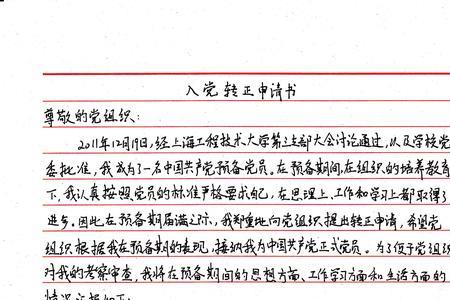 入党转正申请书
尊敬的党组织：
2011年12月19日，经上海工程技术大学第三支部大会讨论通过，以及学校党
委批准，我成为了一名中国共产党预备党员。在预备期间，在组织的培养教育
下，我认真按照党员的标准严格要求自己，在思想上、工作和学习上都取得了
进步。因此在预备期届满之际，我郑重地向党组织提出转正申请，希望党
组织根据我在预备期的表现，接纳我为中国共产党正式党员。为了便于党组织
对我的考察审查，我将在预备期间的思想方面、工作学习方面和生活方面的
情况汇报如下：